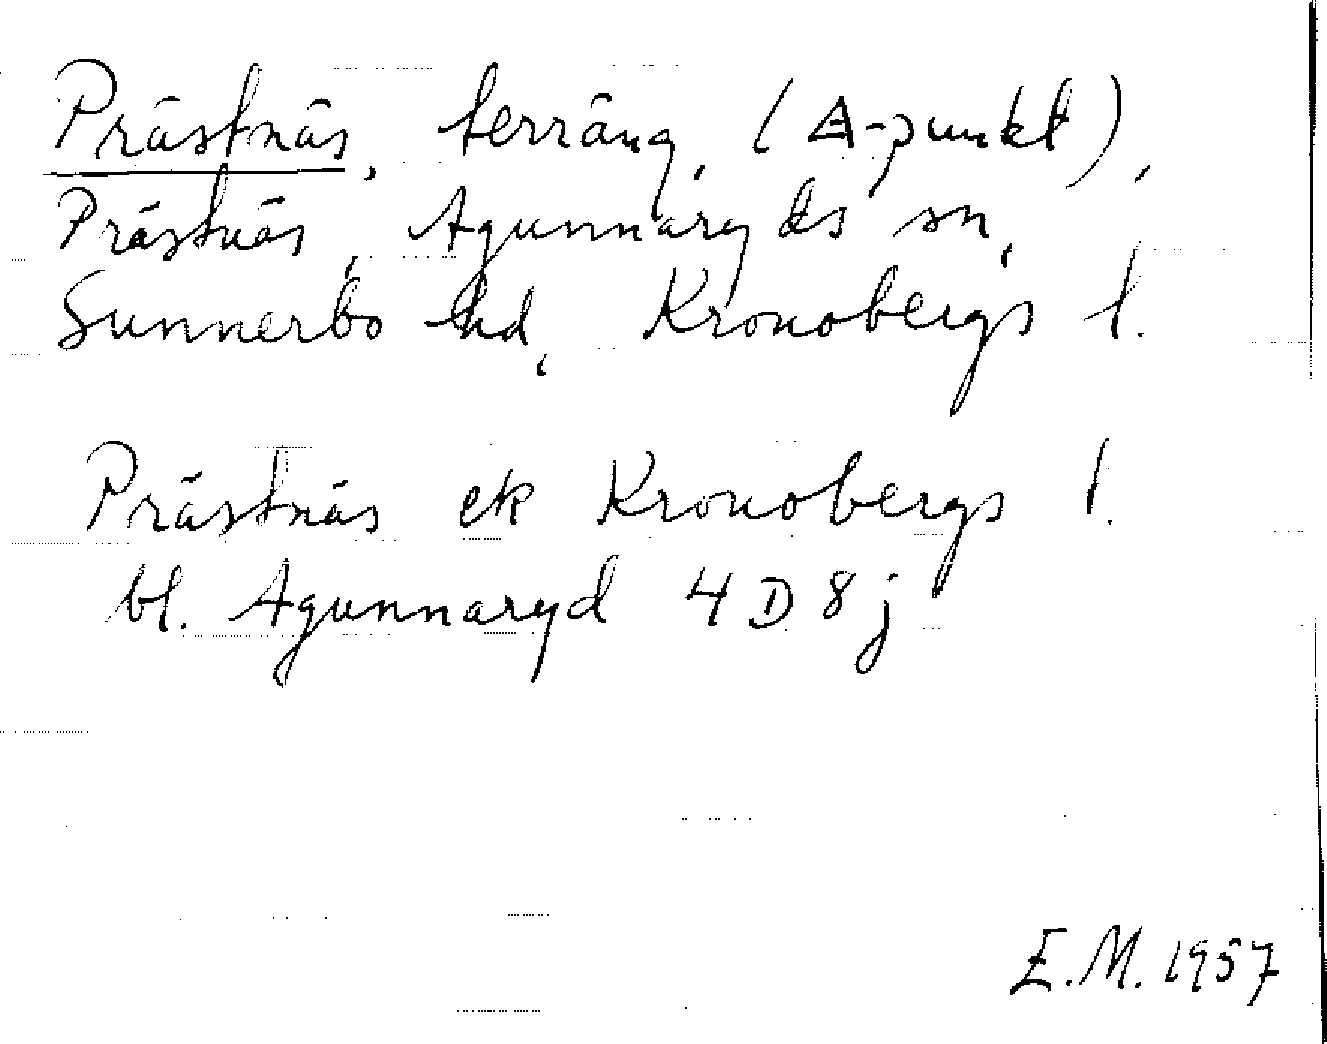 Prästnäs, terräng, (Δ-punkt),
Prästnäs, Agunnaryds sn,
Sunnerbo hd, Kronobergs l.
Prästnäs ek Kronobergs l.
bl. Agunnaryd 4 D 8 j
E.M. 1957